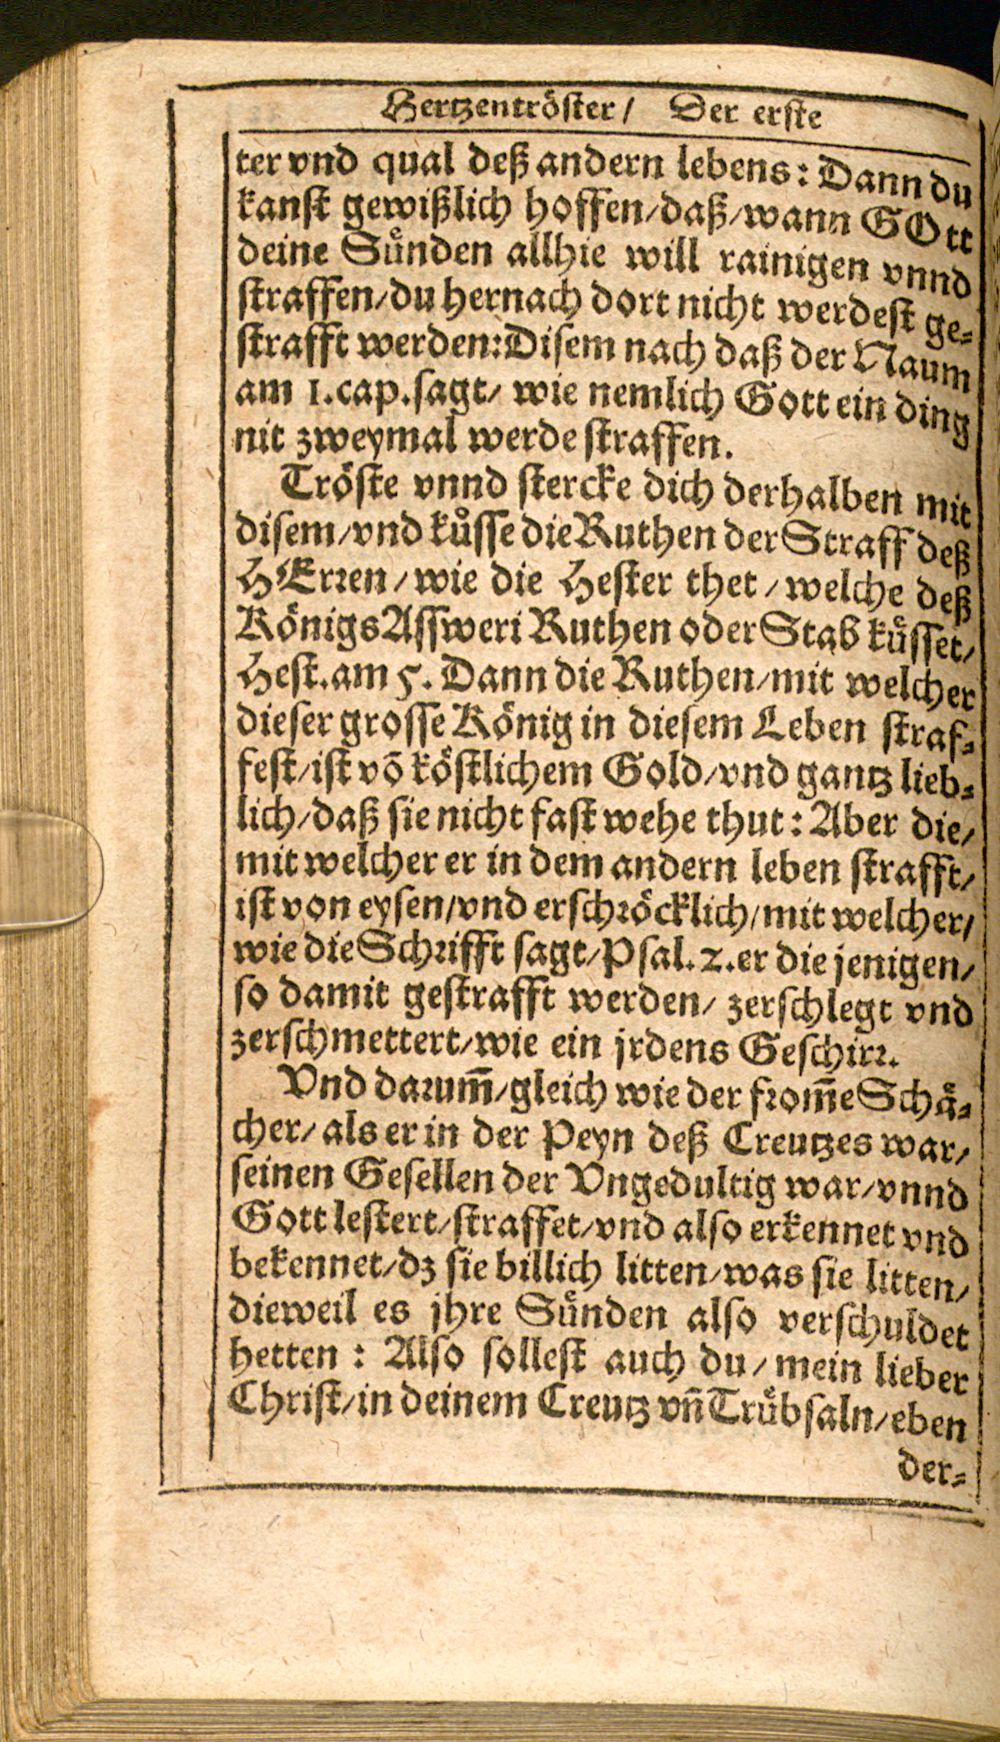 Hertzentröster/ Der erste
ter vnd qual deß andern lebens: Dann du
kanst gewißlich hoffen/daß/wann GOtt
deine Sünden allhie will rainigen vnnd
straffen/du hernach dort nicht werdest ge-
strafft werden: Disem nach daß der Naum
am 1. cap. sagt/ wie nemlich Gott ein ding
nit zweymal werde straffen.
Tröste vnnd stercke dich derhalben mit
disem/vnd küsse die Ruthen der Straff deß
HErren/wie die Hester thet/welche deß
Königs Assweri Ruthen oder Stab küsset/
Hest. am 5. Dann die Ruthen/mit welcher
dieser grosse König in diesem Leben straf-
fest/ist võ köstlichem Gold/vnd gantz lieb-
lich/daß sie nicht fast wehe thut: Aber die/
mit welcher er in dem andern leben strafft/
ist von eysen/vnd erschröcklich/mit welcher/
wie die Schrifft sagt/Psal. 2. er die jenigen/
so damit gestrafft werden/ zerschlegt vnd
zerschmettert/wie ein jrdens Geschirr.
Vnd darum̃/gleich wie der from̃e Schä-
cher/als er in der Peyn deß Creutzes war/
seinen Gesellen der Vngedultig war/vnnd
Gott lestert/straffet/vnd also erkennet vnd
bekennet/dz sie billich litten/was sie litten/
dieweil es jhre Sünden also verschuldet
hetten: Also sollest auch du/mein lieber
Christ/in deinem Creutz vñ Trübsaln/eben
der-